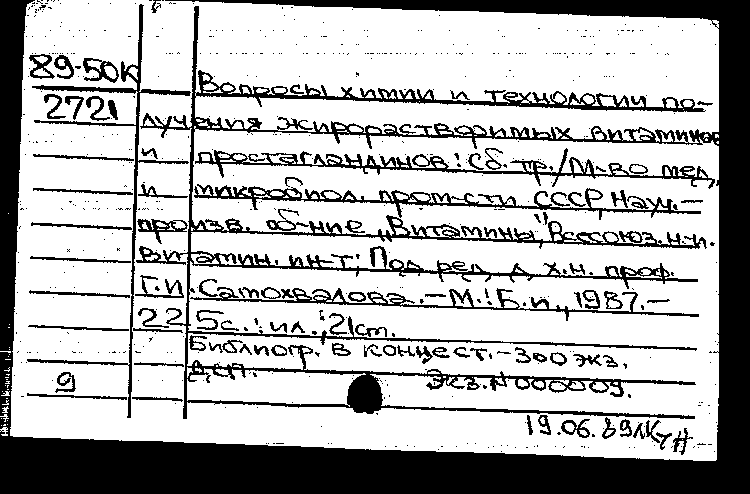 89-50К
2721
Вопросы химии и технологии по-
лучения жирорастворимых витаминов
и простагландинов: Сб. тр./М-во мед.
и микробиол. пром-сти СССР, Науч.-
произв. об-ние "Витамины", Всесоюз. н.-и.
витамин. ин-т; Под ред. д.х.н. проф.
Г.И. Самохвалова. - М.: Б.и., 1987. -
225с.: ил.; 21см.
Библиогр. в конце ст. - 300 экз.
ДСП. Экз. N 000009.
9
19.06.89